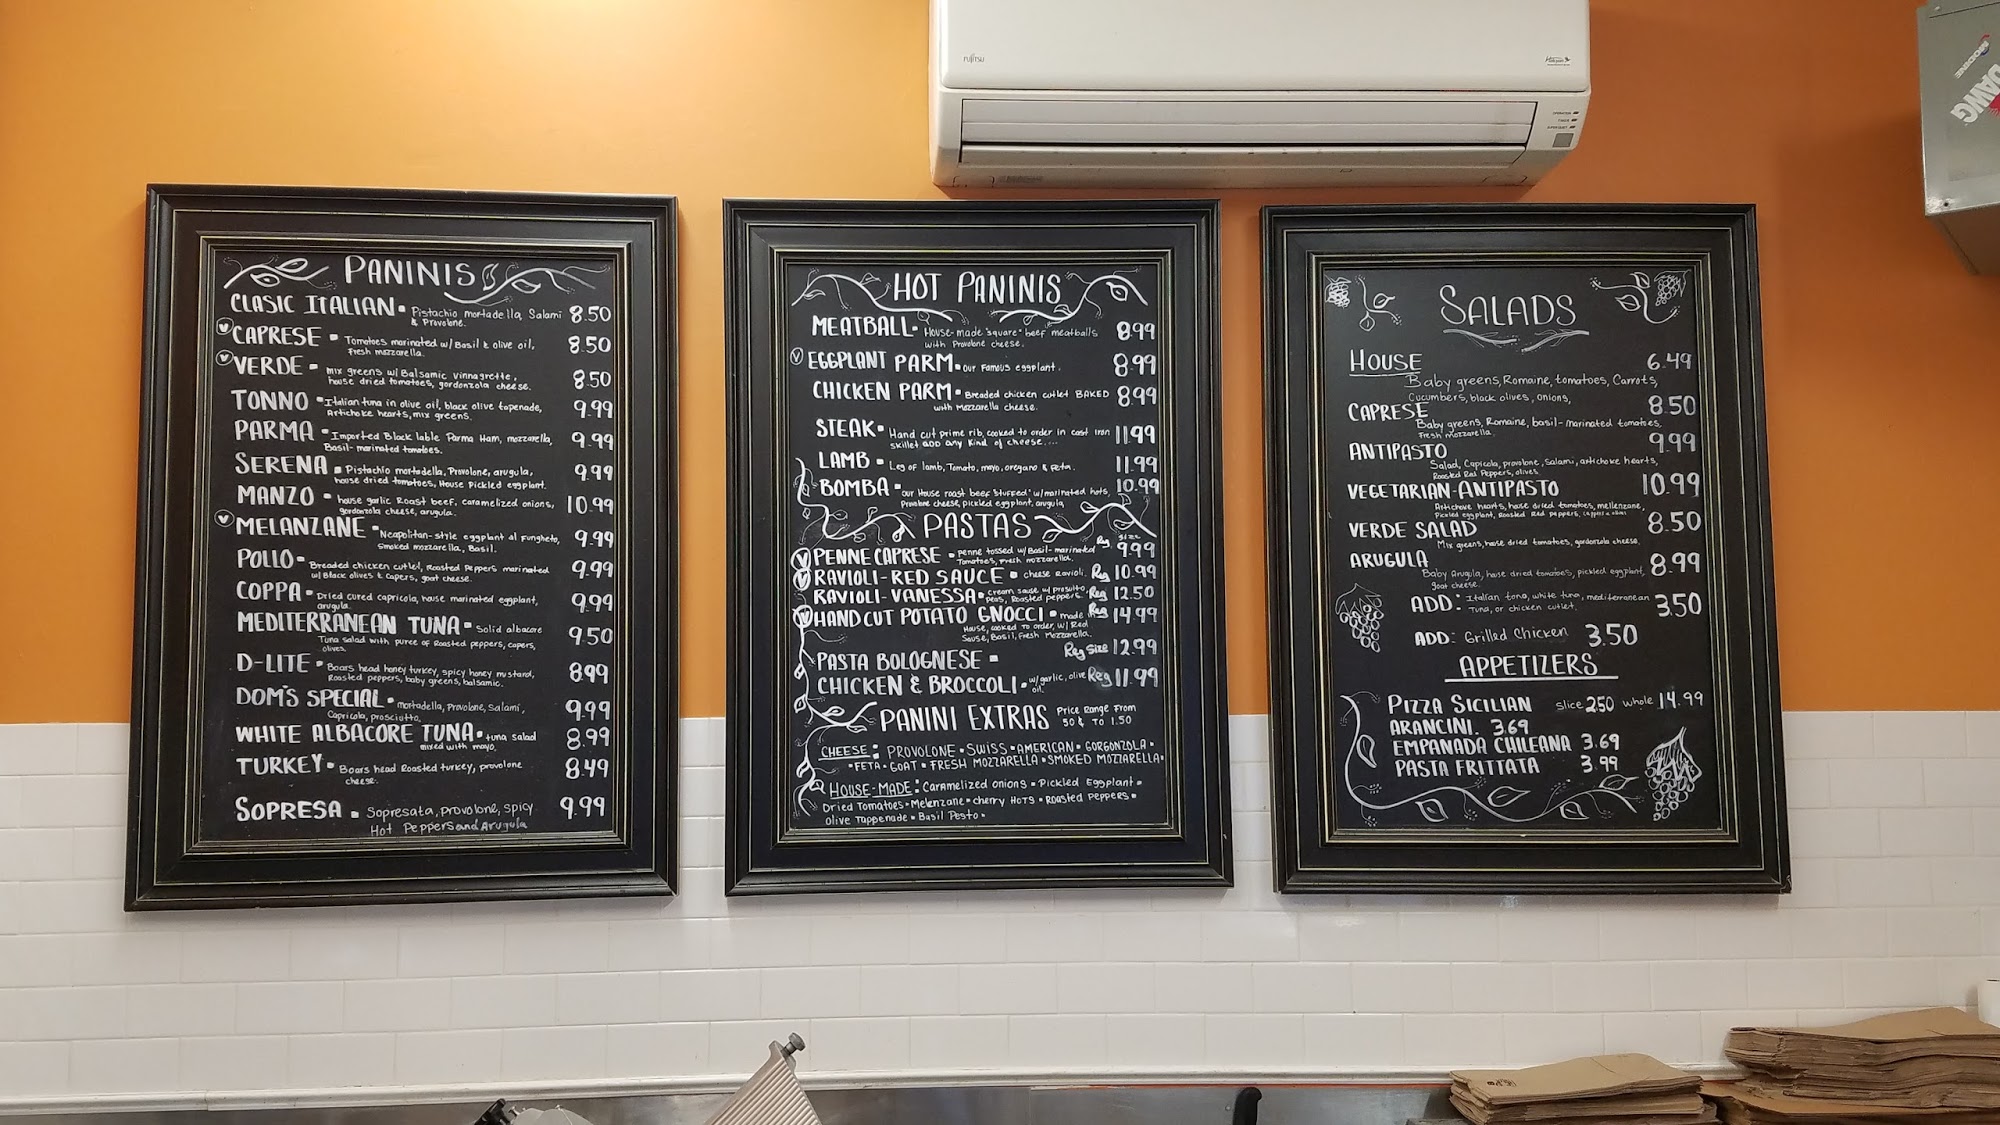 FUJITSU
PANINIS
CLASIC ITALIAN • Pistachio mortadella, Salami 8.50
& Provolone.
V CAPRESE • Tomatoes marinated w/ Basil & olive oil, 8.50
Fresh mozzarella.
V VERDE • mix greens w/ Balsamic vinnagrette, 8.50
house dried tomatoes, gordonzola cheese.
TONNO • Italian tuna in olive oil, black olive tapenade, 9.99
Artichoke hearts, mix greens.
PARMA • Imported Black lable Parma Ham, mozzarella, 9.99
Basil-marinated tomatoes.
SERENA • Pistachio mortadella, Provolone, arugula, 9.99
house dried tomatoes, House Pickled eggplant.
MANZO • house garlic Roast beef, caramelized onions, 10.99
gordonzola cheese, arugula.
V MELANZANE • Neapolitan-style eggplant al Fungheto, 9.99
Smoked mozzarella, Basil.
POLLO • Breaded chicken cutlet, Roasted Peppers marinated 9.99
w/ Black olives & capers, goat cheese.
COPPA • Dried cured capricola, house marinated eggplant, 9.99
arugula.
MEDITERRANEAN TUNA • Solid albacore 9.50
Tuna salad with puree of Roasted peppers, capers,
olives.
D-LITE • Boars head honey turkey, spicy honey mustard, 8.99
Roasted peppers, baby greens, balsamic.
DOM'S SPECIAL • mortadella, Provolone, Salami, 9.99
Capricola, prosciutto.
WHITE ALBACORE TUNA • tuna salad 8.99
mixed with mayo.
TURKEY • Boars head Roasted turkey, provolone 8.49
cheese.
SOPRESA • Sopresata, provolone, spicy 9.99
Hot Peppers and Arugula
HOT PANINIS
MEATBALL • House-made "square" beef meatballs 8.99
with Provolone cheese.
V EGGPLANT PARM • our Famous eggplant. 8.99
CHICKEN PARM • Breaded chicken cutlet BAKED 8.99
with Mozzarella cheese.
STEAK • Hand cut prime rib, cooked to order in cast iron 11.99
skillet ADD any Kind of cheese....
LAMB • Leg of lamb, Tomato, mayo, oregano & Feta. 11.99
BOMBA • our House roast beef "stuffed" w/ marinated hots, 10.99
Provolone cheese, pickled eggplant, arugula
PASTAS
V PENNE CAPRESE • penne tossed w/ Basil-marinated Reg size 9.99
Tomatoes, Fresh mozzarella.
V RAVIOLI-RED SAUCE • cheese ravioli. Reg 10.99
RAVIOLI-VANESSA • cream sause w/ prosutto, Reg 12.50
peas, Roasted peppers.
V HAND CUT POTATO GNOCCI • made in Reg 14.99
House, cooked to order, w/ Red
Sause, Basil, Fresh Mozzarella.
PASTA BOLOGNESE • Reg Size 12.99
CHICKEN & BROCCOLI • w/ garlic, olive Reg 11.99
oil.
PANINI EXTRAS Price Range From
50¢ TO 1.50
CHEESE: PROVOLONE • SWISS • AMERICAN • GORGONZOLA •
• FETA • GOAT • FRESH MOZZARELLA • SMOKED MOZZARELLA •
HOUSE-MADE: Caramelized onions • Pickled Eggplant •
Dried Tomatoes • Melenzane • cherry HOTS • ROASTED PEPPERS •
Olive Tappenade • Basil Pesto •
SALADS
HOUSE 6.49
Baby greens, Romaine, tomatoes, Carrots,
Cucumbers, black olives, onions,
CAPRESE 8.50
Baby greens, Romaine, basil-marinated tomatoes,
Fresh mozzarella.
ANTIPASTO 9.99
Salad, Capicola, provolone, Salami, artichoke hearts,
Roasted Red Peppers, olives.
VEGETARIAN-ANTIPASTO 10.99
Artichove hearts, house dried tomatoes, mellenzane,
Pickled eggplant, Roasted Red peppers,
VERDE SALAD 8.50
Mix greens, house dried tomatoes, gordonzola cheese.
ARUGULA 8.99
Baby Arugula, house dried tomatoes, pickled eggplant,
goat cheese.
ADD: Italian tona, white tuna, mediterranean 3.50
Tuna, or chicken cutlet.
ADD: Grilled Chicken 3.50
APPETIZERS
PIZZA SICILIAN slice 2.50 whole 14.99
ARANCINI. 3.69
EMPANADA CHILEANA 3.69
PASTA FRITTATA 3.99